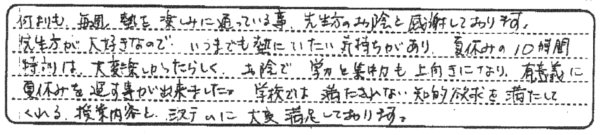 何よりも、毎週、塾を楽しみに通っている事、先生方のお陰と感謝しております。
先生方が大好きなので、いつまでも塾にいたい気持ちがあり、夏休みの10時間
特訓は、大変楽しかったらしく、お陰で学力と集中力も上向きになり、有意義に
夏休みを過す事が出来ました。学校では満たされない知的欲求を満たして
くれる授業内容とシステムに大変満足しております。